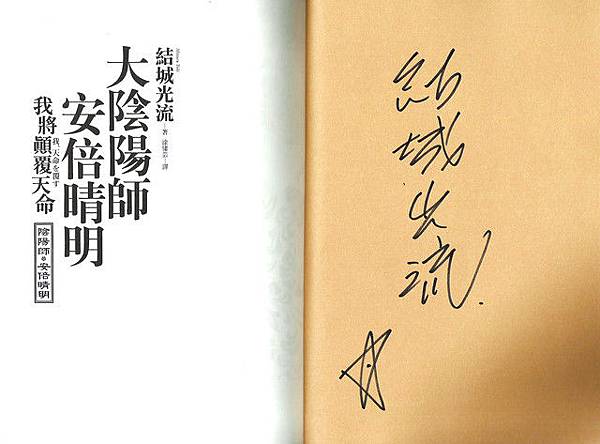 結城光流
著 涂愫芸 譯
大陰陽師
安倍晴明
我、天命を覆す
我將顛覆天命
陰陽師・安倍晴明
結城光流